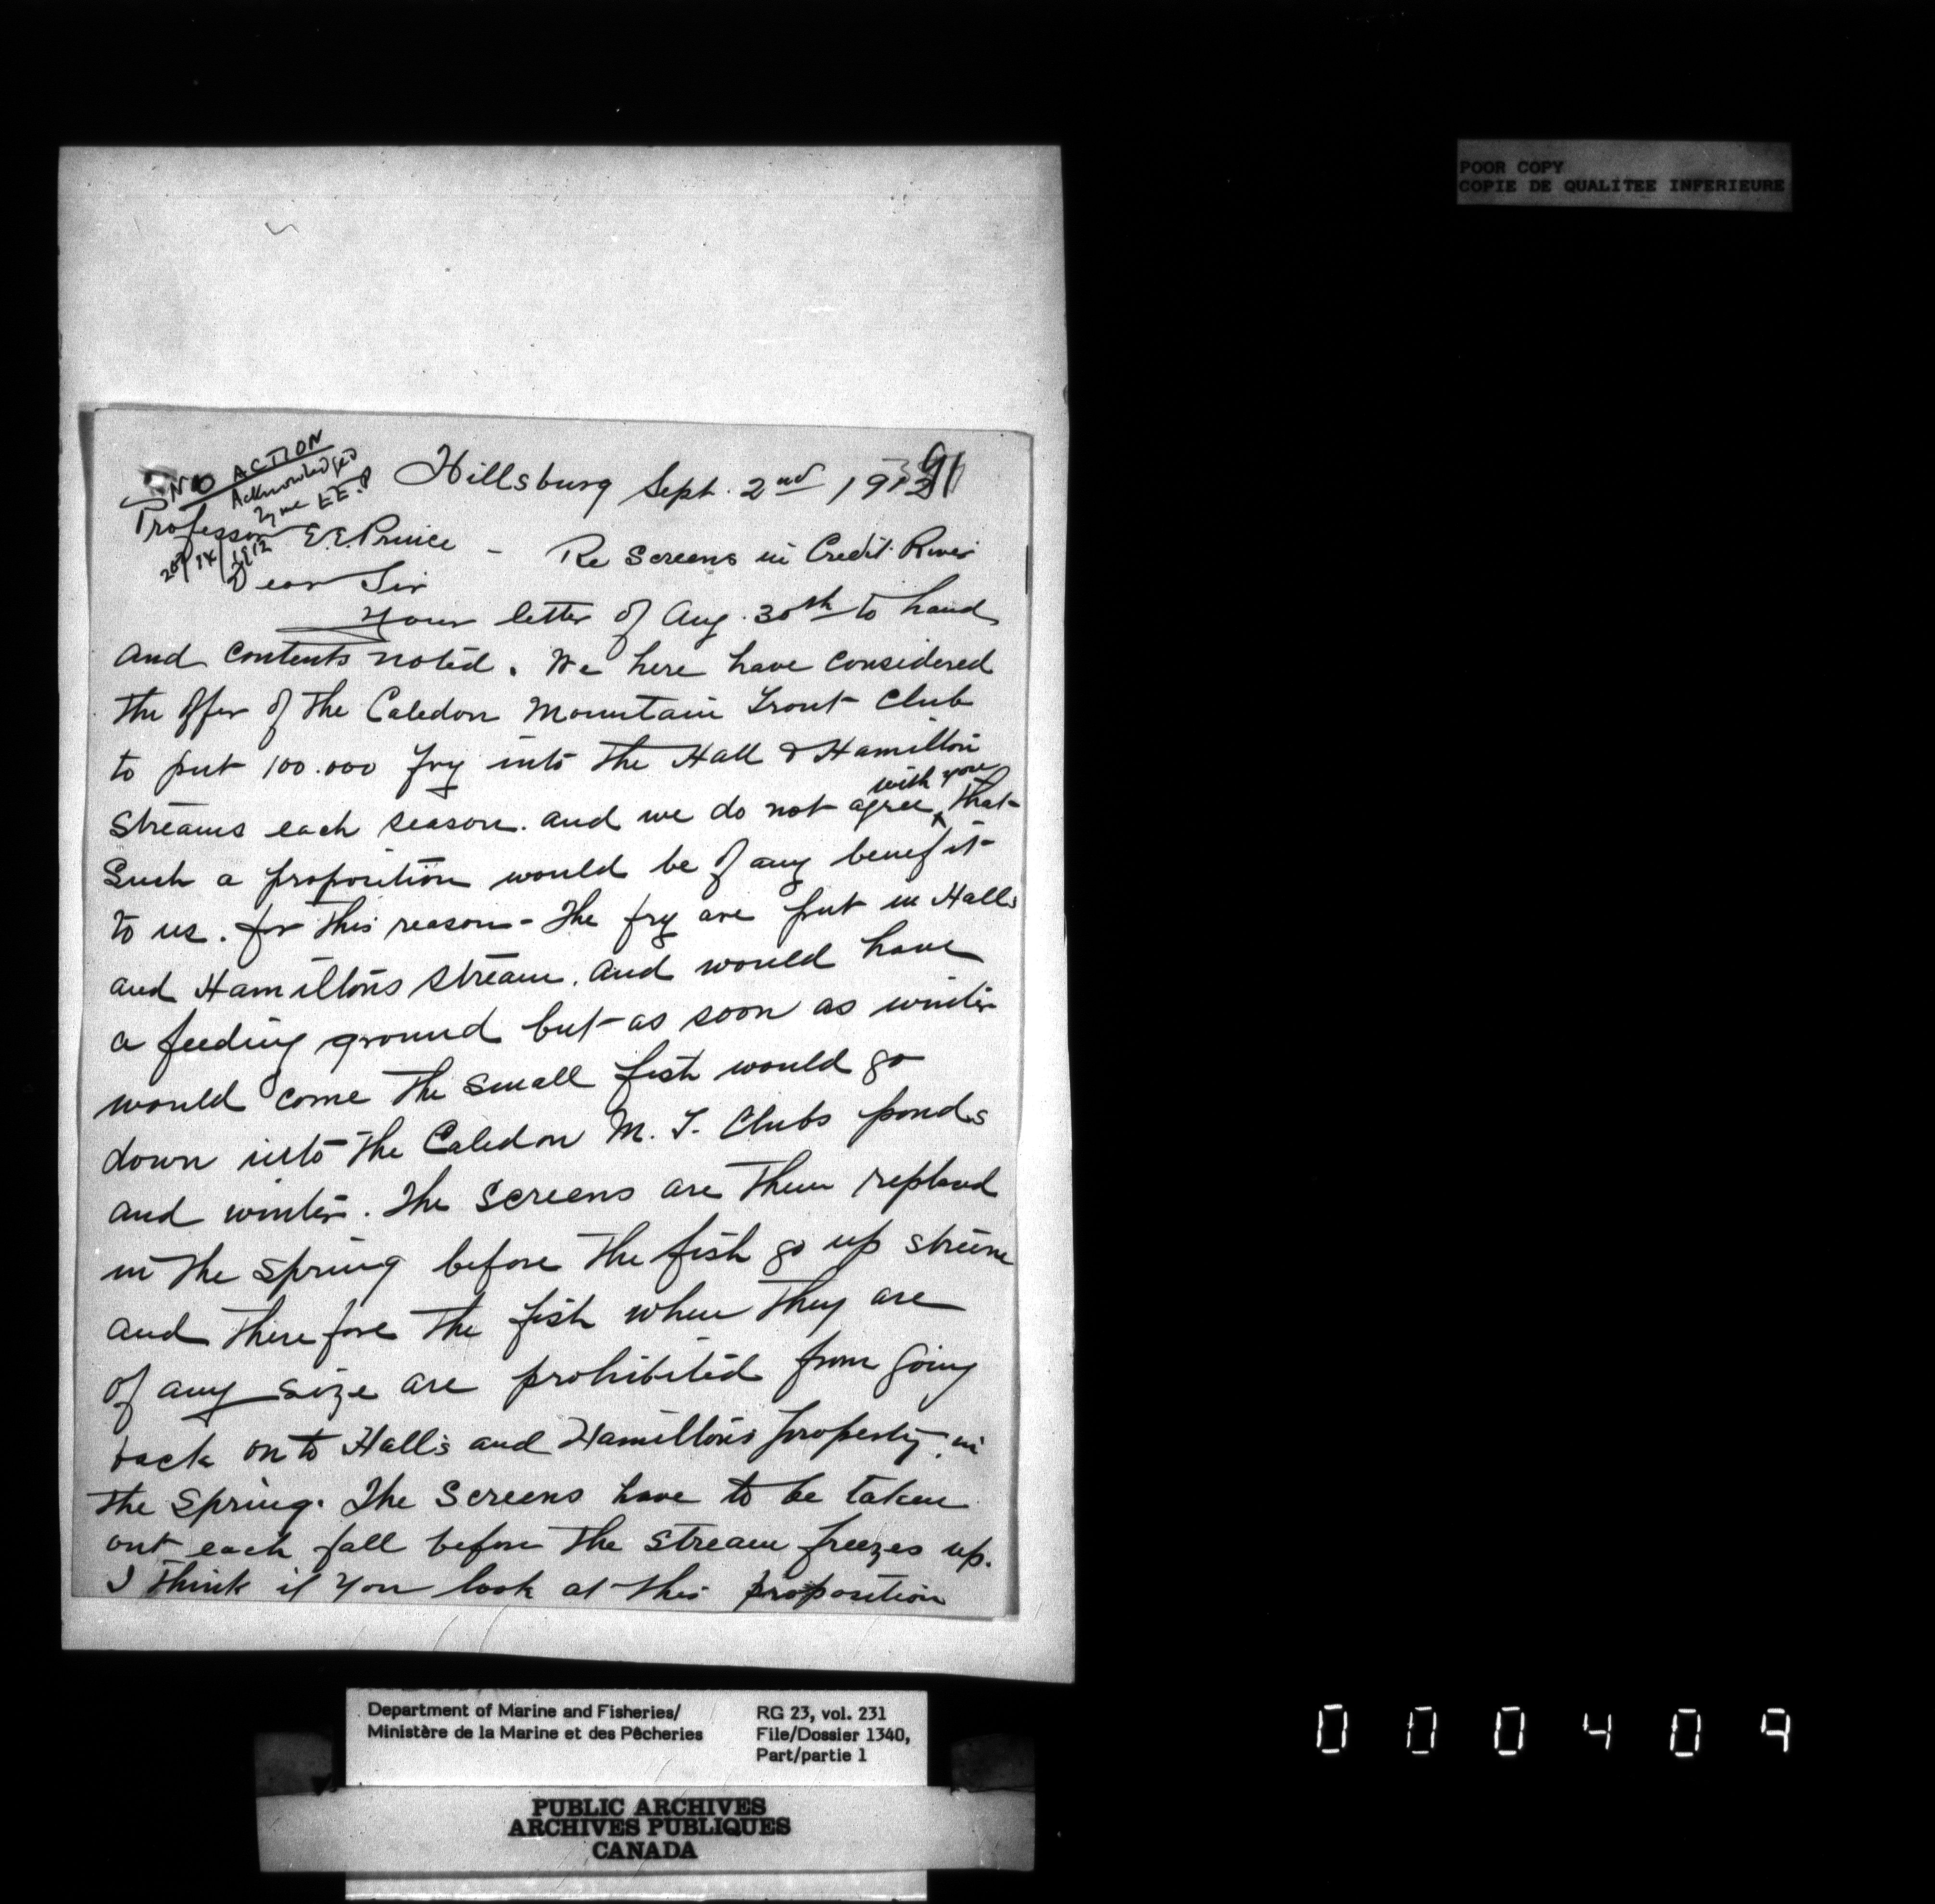 POOR COPY
COPIE DE QUALITEE INFERIEURE
NO ACTION
Acknowledged
by me E.E.P
Hillsburg Sept. 2nd 1912
91
Professor E.E. Prince - Re Screens in Credit River
1912
Dear Sir
Your letter of Aug. 30th to hand
and contents noted. We here have considered
the offer of the Caledon Mountain Trout Club
to put 100.000 fry into the Hall & Hamilton
with you
streams each season. and we do not agree ^ that
Such a proposition would be of any benefit
to us. for this reason - The fry are put in Halls
and Hamiltons stream. and would have
a feeding ground but as soon as winter
would come the small fish would go
down into the Caledon M. T. Clubs ponds
and winter. The screens are then replaced
in the spring before the fish go up stream
and therefore the fish when they are
of any size are prohibited from going
back on to Hall's and Hamilton's property in
the Spring. The Screens have to be taken
out each fall before the stream freezes up.
I think if you look at this proposition
Department of Marine and Fisheries/
Ministère de la Marine et des Pêcheries
RG 23, vol. 231
File/Dossier 1340,
Part/partie 1
PUBLIC ARCHIVES
ARCHIVES PUBLIQUES
CANADA
000409